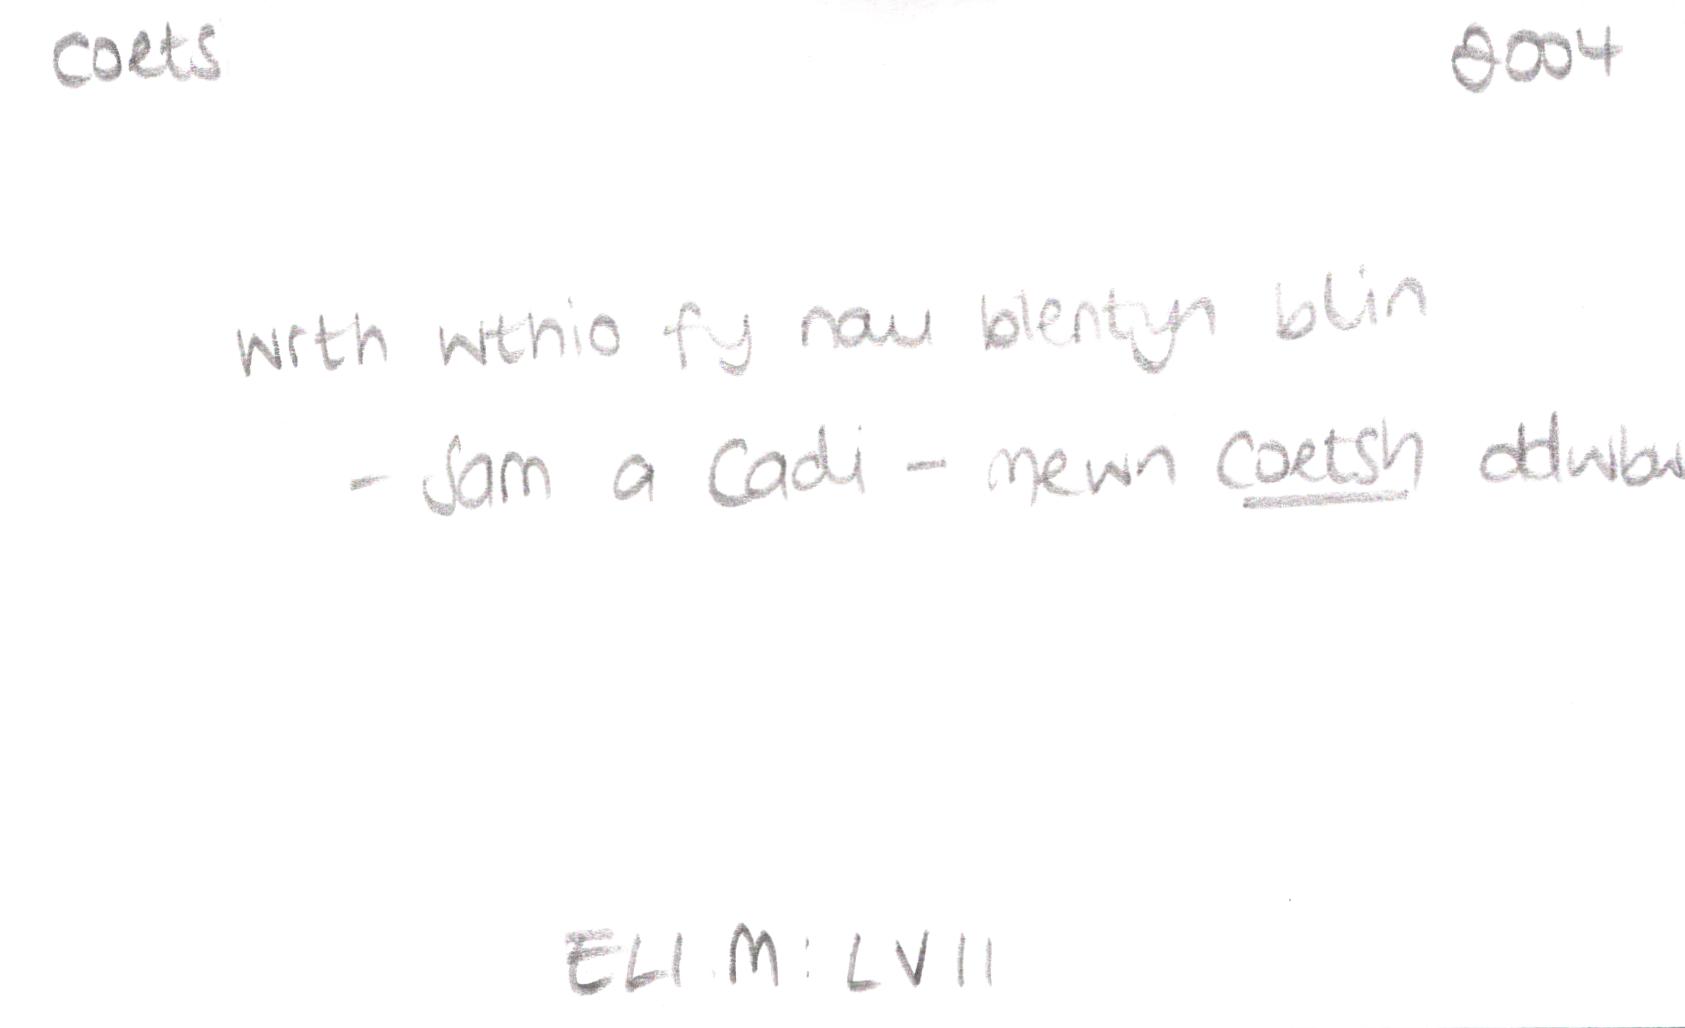 coets 2004
wrth wthio fy nau blentyn blin
- Jam a Cadi - mewn coetsh
ELl.M: LVII